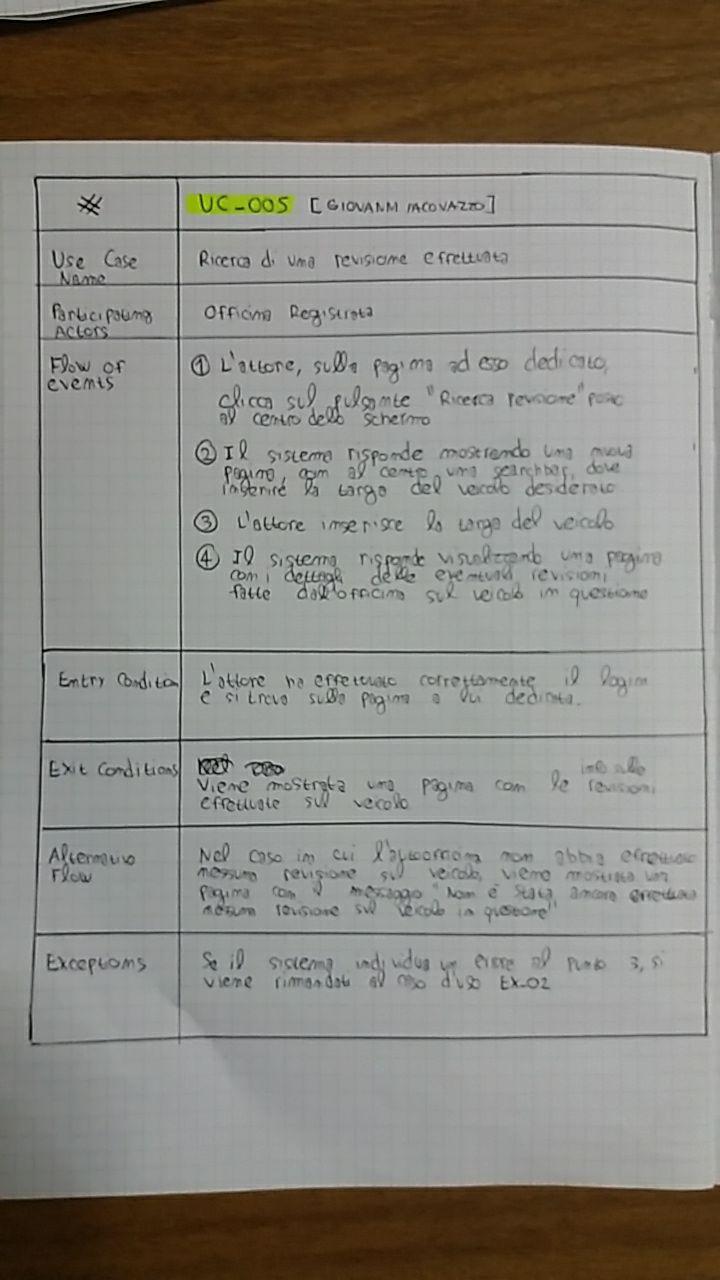 # UC-005 [GIOVANNI IACOVAZZO]
Use Case
Name
Ricerca di una revisione effettuata
Participating
Actors
Officina Registrata
Flow of
events
① L'attore, sulla pagina ad esso dedicata,
clicca sul pulsante "Ricerca revisione" posto
al centro dello schermo
② Il sistema risponde mostrando una nuova
pagina, con al centro una searchbar, dove
inserire la targa del veicolo desiderato
③ L'attore inserisce la targa del veicolo
④ Il sistema risponde visualizzando una pagina
con i dettagli delle eventuali revisioni
fatte dall'officina sul veicolo in questione
Entry Condition
L'attore ha effettuato correttamente il login
e si trova sulla pagina a lui dedicata.
Exit Conditions
info alle
Viene mostrata una pagina con le revisioni
effettuate sul veicolo
Alternative
Flow
Nel caso in cui l'autofficina non abbia effettuato
nessuna revisione sul veicolo, viene mostrata una
pagina con il messaggio "Non è stata ancora effettuata
nessuna revisione sul veicolo in questione"
Exceptions
Se il sistema individua un errore al punto 3, si
viene rimandati al caso d'uso EX-02